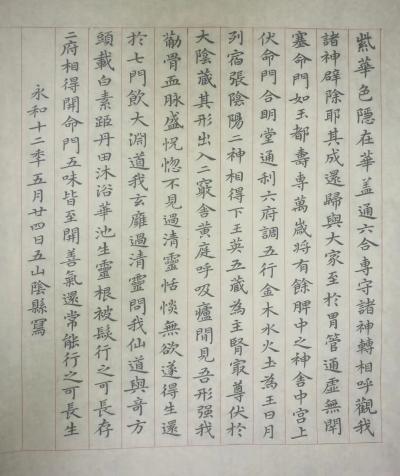 紫華色隱在華蓋通六合專守諸神轉相呼觀我
諸神辟除耶其成還歸與大家至於胃管通虛無閇
塞命門如玉都壽專萬歲將有餘脾中之神舍中宮上
伏命門合明堂通利六府調五行金木水火土為王日月
列宿張陰陽二神相得下玉英五藏為主腎最尊伏於
大陰藏其形出入二竅舍黃庭呼吸廬間見吾形强我
筋骨血脉盛怳惚不見過清靈恬惔無欲遂得生還
於七門飲大淵道我玄廱過清靈問我仙道與奇方
頭載白素距丹田沐浴華池生靈根被髮行之可長存
二府相得開命門五味皆至開善氣還常能行之可長生
永和十二年五月廿四日五山陰縣寫